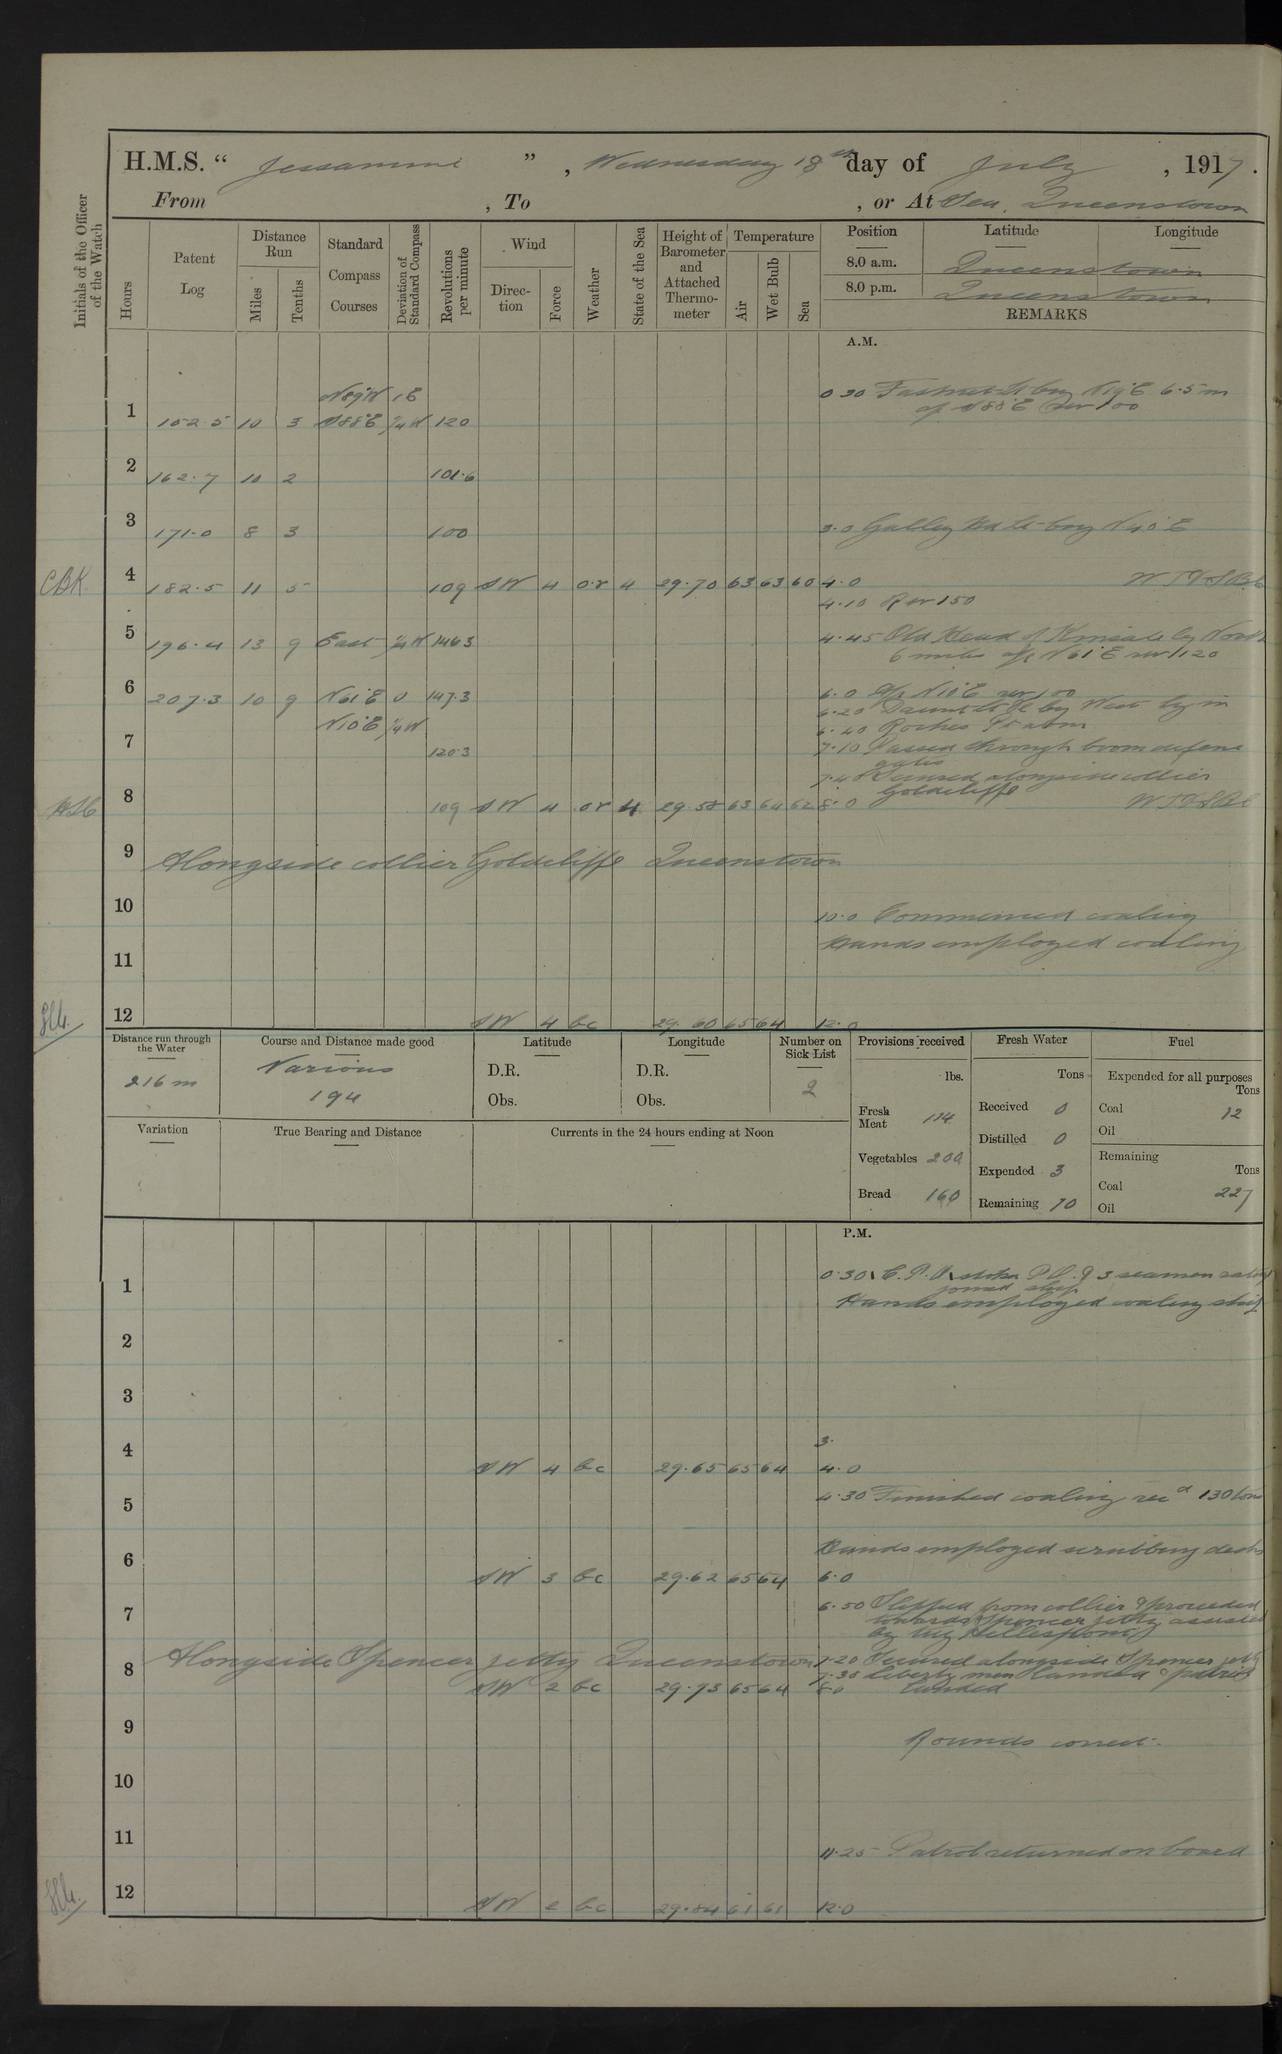 H.M.S. " Jessamine " , Wednesday 18th day of July , 1917 .
From , To , or At Sea, Queenstown
Initials of the Officer of the Watch
Hours
Patent Log
Distance Run
Miles
Tenths
Standard Compass Courses
Deviation of Standard Compass
Revolutions per minute
Wind
Direction
Force
Weather
State of the Sea
Height of Barometer and Attached Thermometer
Temperature
Air
Wet Bulb
Sea
Position Latitude Longitude
8.0 a.m. Queenstown
8.0 p.m. Queenstown
REMARKS
A.M.
N89W 1E
0 30 Fastnet Lt brg N19°E 6.5 m
1 152.5 10 3 S88°E ¼W 120
a/c S88°E rev 100
2 162.7 10 2 101.6
3 171.0 8 3 100 3.0 Galley Hd Lt brg N40°E
CBK 4 182.5 11 5 109 SW 4 or 4 29.70 63 63 60 4.0
4.10 Rev 150
5 196.4 13 9 East ¼W 146.3 4.45 Old Head of Kinsale brg North
6 miles a/c N61°E rev 120
6 207.3 10 9 N61°E 0 147.3 6.0 A/c N10°E rev 100
N10°E ¼W
6.20 Daunt Lt Vl brg West
6.40 Roches Pt abm
7 120.3 7.10 Passed through boom defence gates
7.40 Secured alongside collier Goldcliffe
8 109 SW 4 or 4 29.58 63 64 62 8.0
9 Alongside collier Goldcliffe Queenstown
10 10.0 Commenced coaling
Hands employed coaling
11
12 SW 4 bc 29.60 65 64 12.0
Distance run through the Water
216 m
Course and Distance made good
Various
194
Latitude
D.R.
Obs.
Longitude
D.R.
Obs.
Number on Sick List
2
Provisions received
lbs.
Fresh Meat 114
Vegetables 200
Bread 160
Fresh Water
Tons
Received 0
Distilled 0
Expended 3
Remaining 70
Fuel
Expended for all purposes
Tons
Coal 12
Oil
Remaining
Tons
Coal 227
Oil
Variation
True Bearing and Distance
Currents in the 24 hours ending at Noon
P.M.
0.30 1 C.P.O. 1 stoker P.O. & 3 seamen ratings
joined ship
1 Hands employed coaling ship
2
3
3.
4 SW 4 bc 29.65 65 64 4.0
4.30 Finished coaling recd 130 tons
5
Hands employed scrubbing decks
6 SW 3 bc 29.62 65 64 6.0
6.50 Slipped from collier & proceeded
7 towards Spencer jetty assisted
by tug Hellespont
Alongside Spencer jetty Queenstown 7.20 Secured alongside Spencer jetty
8 7.30 Liberty men landed & patrol
SW 2 bc 29.73 65 64 8.0 landed
9 Rounds correct.
10
11 11.25 Patrol returned on board
12 SW 2 bc 29.84 61 61 12.0